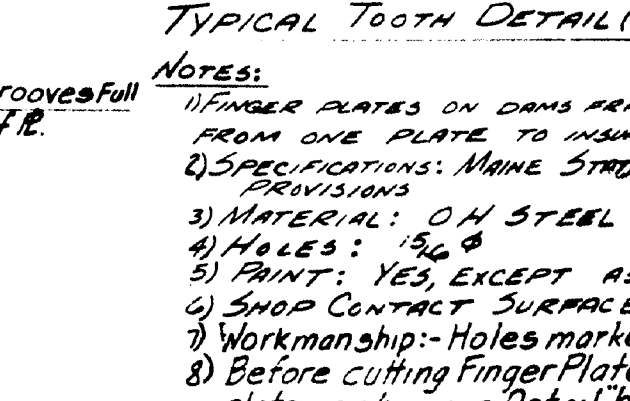 TYPICAL TOOTH DETAIL (
NOTES:
rooves Full
f PL.
1) FINGER PLATES ON DAMS FRA
FROM ONE PLATE TO INSU
2) SPECIFICATIONS: MAINE STAT
PROVISIONS
3) MATERIAL: OH STEEL
4) HOLES: 15/16 φ
5) PAINT: YES, EXCEPT AS
6) SHOP CONTACT SURFACE
7) Workmanship:- Holes marke
8) Before cutting Finger Plate